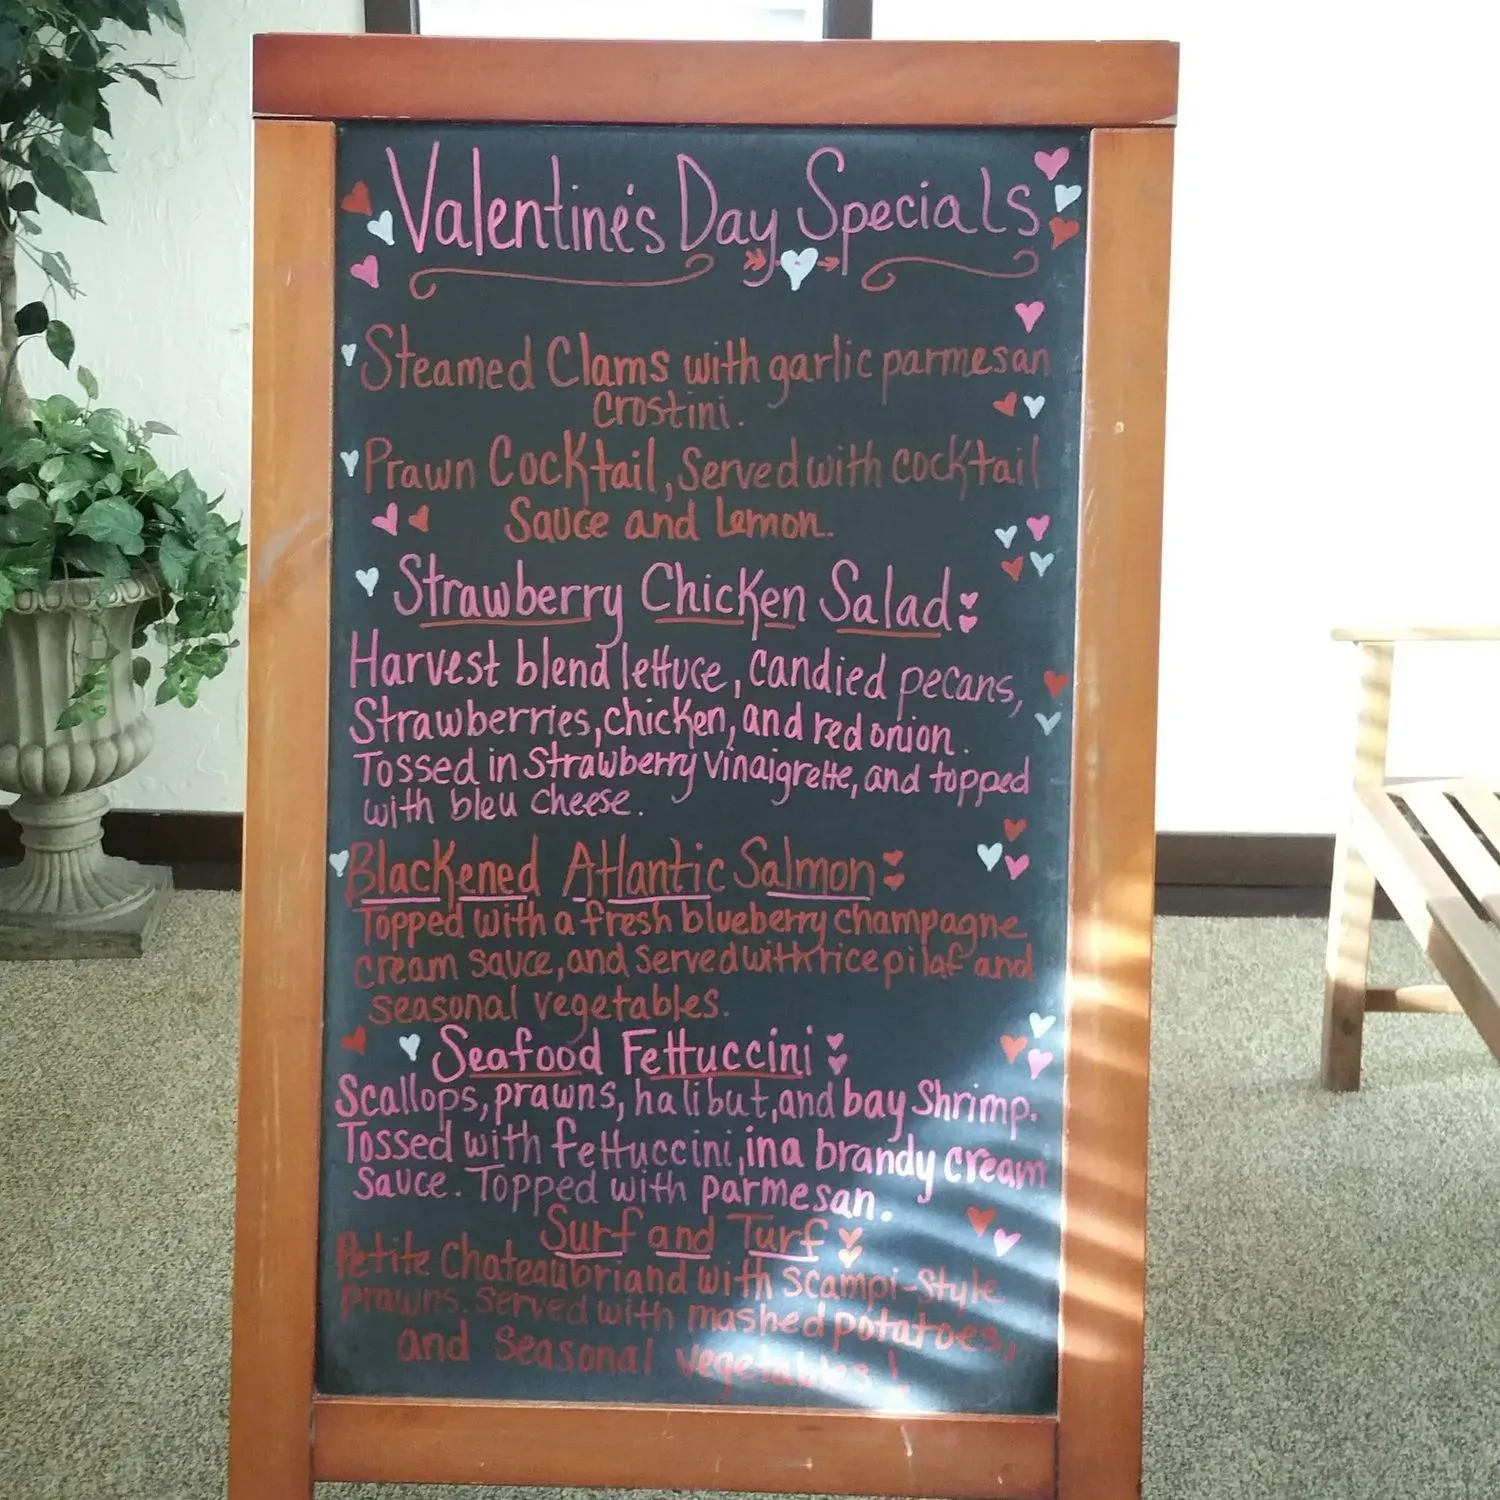 Valentine's Day Specials
Steamed Clams with garlic parmesan
crostini.
Prawn Cocktail, Served with cocktail
Sauce and Lemon.
Strawberry Chicken Salad:
Harvest blend lettuce, candied pecans,
Strawberries, chicken, and red onion.
Tossed in Strawberry vinaigrette, and topped
with bleu cheese.
Blackened Atlantic Salmon:
Topped with a fresh blueberry champagne
cream sauce, and served with rice pilaf and
seasonal vegetables.
Seafood Fettuccini:
Scallops, prawns, halibut, and bay Shrimp.
Tossed with fettuccini, in a brandy cream
sauce. Topped with parmesan.
Surf and Turf:
Petite Chateaubriand with scampi-style
prawns. Served with mashed potatoes,
and seasonal vegetables!